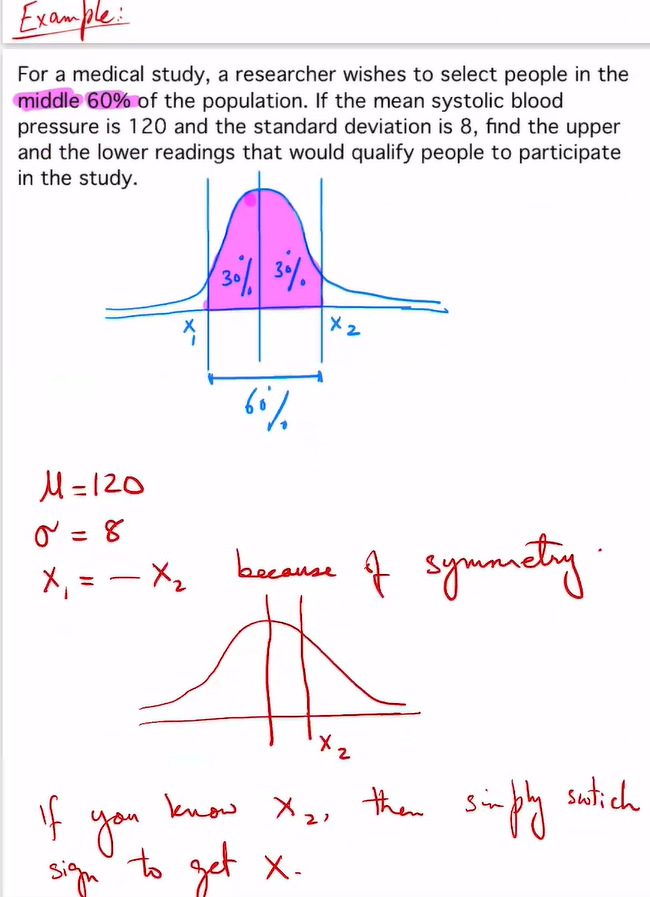 Example:
For a medical study, a researcher wishes to select people in the
middle 60% of the population. If the mean systolic blood
pressure is 120 and the standard deviation is 8, find the upper
and the lower readings that would qualify people to participate
in the study.
30% 30%
X1 X2
60%
μ = 120
σ = 8
X1 = - X2 because of symmetry.
X2
If you know X2, then simply swtich
sign to get X.